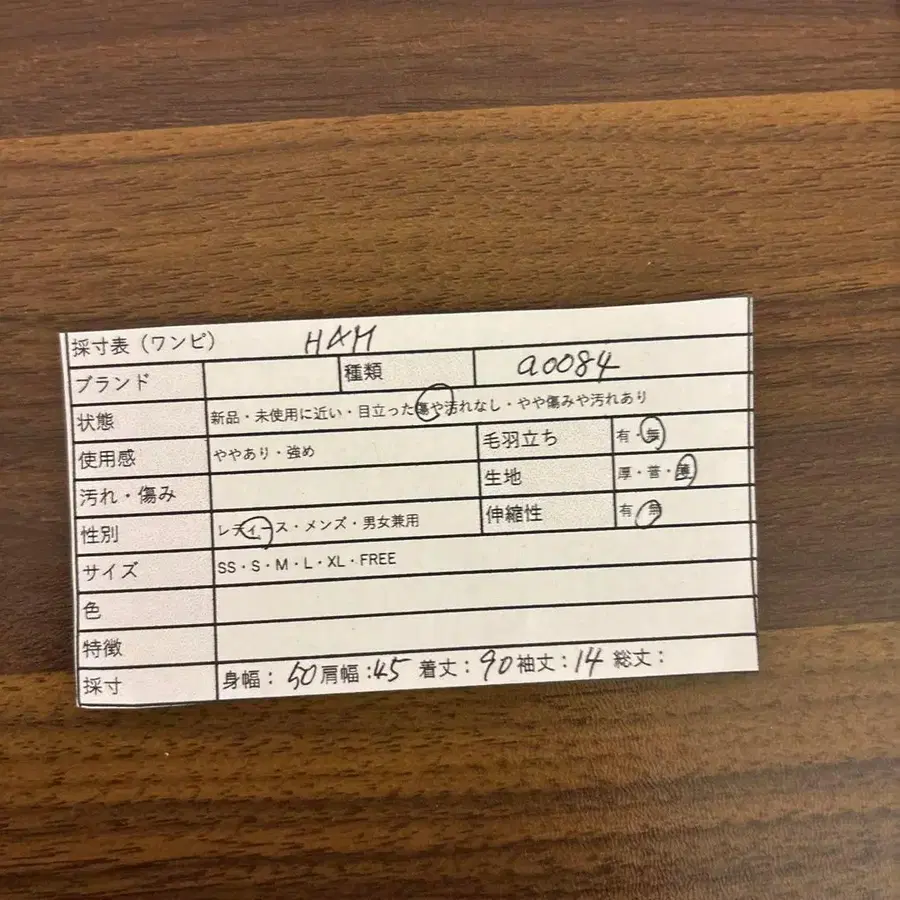 採寸表（ワンピ） H&M
ブランド 種類 a0084
状態 新品・未使用に近い・目立った傷や汚れなし・やや傷みや汚れあり
使用感 ややあり・強め 毛羽立ち 有・無
汚れ・傷み 生地 厚・普・薄
性別 レディース・メンズ・男女兼用 伸縮性 有・無
サイズ SS・S・M・L・XL・FREE
色
特徴
採寸 身幅：50 肩幅：45 着丈：90 袖丈：14 総丈：